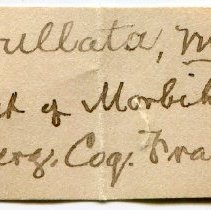 ullata, m
of Morbih
erg. Coq. Fra